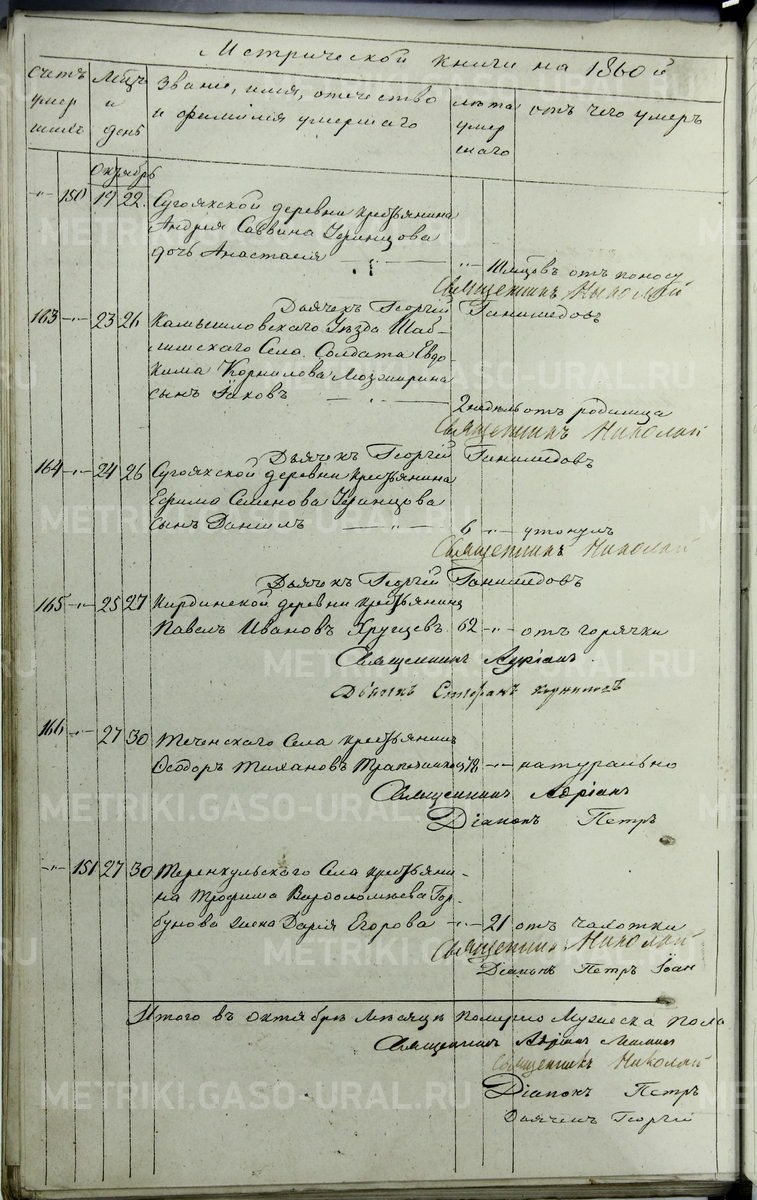 Метрической книги на 1860й
счетъ умер шихъ
Мѣсц и день
звание, имя, отечество и фамилия умершаго
лѣта умер шаго
отъ чего умеръ
Октябрь
-"- 150 19 22 Сугоякской деревни крестьянина
Андрея Саввина
дочь Анастасия -"- 10 мѣсцов отъ поносу
Священникъ Николай
Дьячекъ Георгій Ганимедовъ
163 -"- 23 26 Камышловскаго Уѣзда
Села Солдата Евдо-
кима Корнилова
сынъ Іаковъ 2 недѣль отъ родимца
Священникъ Николай
Дьячекъ Георгій Ганимедовъ
164 -"- 24 26 Сугоякской деревни крестьянина
Ефрима Семенова
сынъ Даниилъ -"- 6 -"- утонулъ
Священникъ Николай
Дьячекъ Георгій Ганимедовъ
165 -"- 25 27 Кирдинской деревни крестьянинъ
Павелъ Ивановъ 62 -"- отъ горячки
Священникъ Адріанъ
Дьячекъ Стефанъ
166 -"- 27 30 Теченскаго Села крестьянинъ
Феодоръ 78 -"- натурально
Священникъ Адріанъ
Діаконъ Петръ
-"- 151 27 30 Теренкульскаго Села крестьяни-
на Трофима Варфоломѣева Гор-
бунова жена Дарія Егорова -"- 21 отъ чахотки
Священникъ Николай
Діаконъ Петръ Іоан
Итого въ Октябрѣ Мѣсяцѣ померло Мужеска пола
Священникъ Адріанъ
Священникъ Николай
Діаконъ Петръ
Дьячекъ Георгій
METRIKI.GASO-URAL.RU